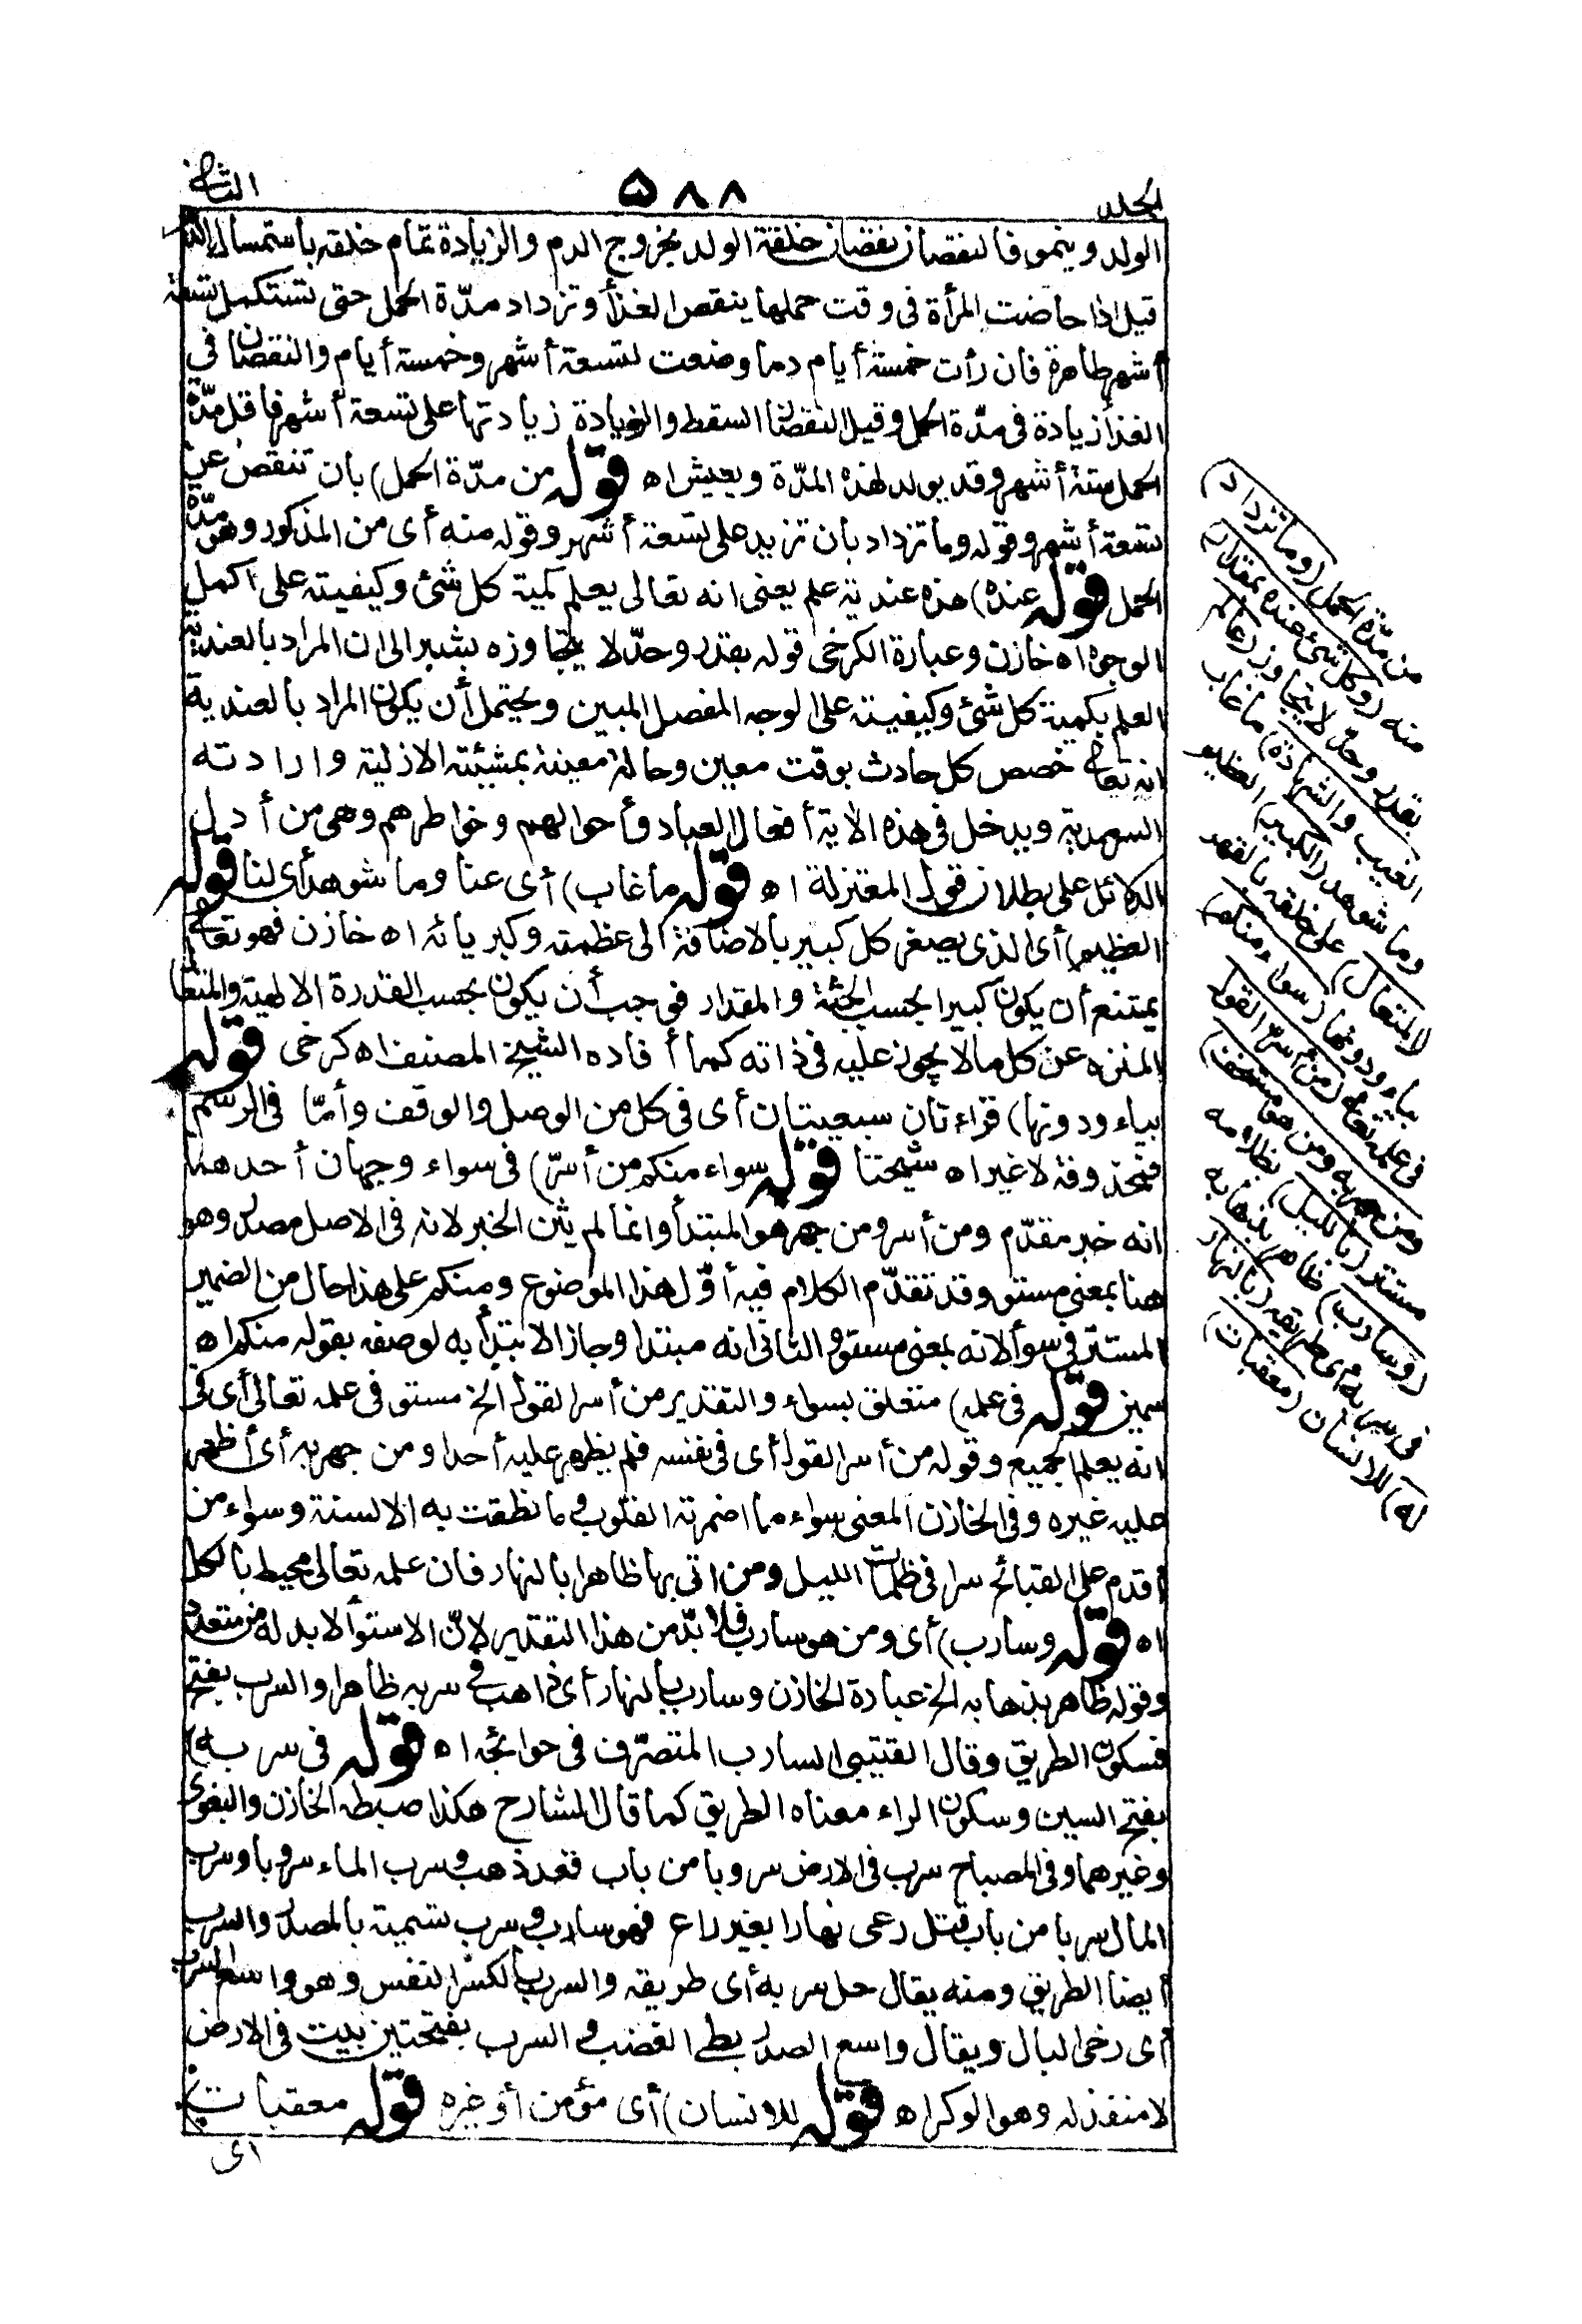 الجلد
٥٨٨
الثاني
الولد وينمو فالنقصان نقصان خلقة الولد بخروج الدم والزيادة تمام خلقه باستمساك الدم
قيل اذا حاضت المرأة في وقت حملها ينقص الغذأ وتزداد مدّة الحمل حتى تستكمل تسعة
أشهر طاهرة فان رأت خمسة أيام دما وضعت لتسعة أشهر وخمسة أيام والنقصان في
الغذأ زيادة في مدّة الحمل وقيل النقصان السقط والزيادة زيادتها على تسعة أشهر فاقل مدّة
الحمل ستة أشهر وقد يولد لهذه المدّة ويعيش اه قوله من مدّة الحمل) بأن تنقص عن
تسعة أشهر وقوله وما تزداد بان تزيد على تسعة أشهر وقوله منه أى من المذكور وهو مدّة
الحمل قوله عنده) هذه عندية علم يعنى انه تعالى يعلم كمية كل شئ وكيفيته على اكمل
الوجوه اه خازن وعبارة الكرخى قوله بقدر وحدّ لا يتجاوزه يشير الى ان المراد بالعندية
العلم بكمية كل شئ وكيفيته على الوجه المفصل المبين ويحتمل أن يكون المراد بالعندية
انه تعالى خصص كل حادث بوقت معين وحالة معينة بمشيئته الازلية وارادته
السرمدية ويدخل في هذه الآية أفعال العباد وأحوالهم وخواطرهم وهى من أدل
الدلائل على بطلان قول المعتزلة اه قوله ما غاب) أى عنا وما شوهد أى لنا قوله
العظيم) أى الذى يصغر كل كبير بالاضافة الى عظمته وكبريائه اه خازن فهو تعالى
يمتنع أن يكون كبيرا بحسب الجثة والمقدار فوجب أن يكون بحسب القدرة الالهية والمتعال
المنزه عن كل ما لا يجوز عليه في ذاته كما أفاده الشيخ المصنف اه كرخى قوله
بياء ودونها) قراءتان سبعيتان أى في كل من الوصل والوقف وأمّا في الرسم
فمحذوفة لا غير اه شيخنا قوله سواء منكم من أسرّ) في سواء وجهان أحدهما
انه خبر مقدّم ومن أسر ومن جهر هو المبتدأ وانما لم يثن الخبر لانه في الاصل مصدر وهو
هنا بمعنى مستو وقد تقدّم الكلام فيه أوّل هذا الموضوع ومنكم على هذا حال من الضمير
المستتر في سوأ لانه بمعنى مستو والثانى انه مبتدا وجاز الابتدأ به لوصفه بقوله منكم اه
سمين قوله في علمه) متعلق بسواء والتقدير من أسر القول الخ مستو في علمه تعالى أى في
انه يعلم الجميع وقوله من أسر القول أى في نفسه فلم يظهر عليه أحدا ومن جهر به أى أظهر
عليه غيره وفى الخازن المعنى سواء ما اضمرته القلوب وما نطقت به الالسنة وسواء من
أقدم على القبائح سرا في ظلمات الليل ومن اتى بها ظاهرا بالنهار فان علمه تعالى محيط بالكل
اه قوله وسارب) أى ومن هو سارب فلا بدّ من هذا التقدير لانّ الاستوأ لا بد له من متعدد
وقوله ظاهر بذهابه الخ عبارة الخازن وسارب بالنهار أى ذاهب في سربه ظاهرا والسرب بفتح
فسكون الطريق وقال القتيبى السارب المتصرّف في حوائجه اه قوله في سربه)
بفتح السين وسكون الراء معناه الطريق كما قال الشارح هكذا ضبطه الخازن والبغوى
وغيرهما وفى المصباح سرب في الارض سروبا من باب قعد ذهب وسرب الماء سروبا وسرب
المال سربا من باب قتل رعى نهارا بغير راع فهو سارب وسرب تسمية بالمصدر والسرب
أيضا الطريق ومنه يقال خل سربه أى طريقه والسرب بالكسر النفس وهو واسع السرب
أى رخى البال ويقال واسع الصدر بطئ الغضب والسرب بفتحتين بيت في الارض
لا منفذ له وهو الوكر اه قوله للانسان) أى مؤمن أو غيره قوله معقبات)
اى
من مدّة الحمل (وما تزداد)
منه (وكل شئ عنده بمقدار)
بقدر وحدّ لا يتجاوزه (عالم
الغيب والشهادة) ما غاب
وما شوهد (الكبير) العظيم
(المتعال) على خلقه بالقهر
بياء ودونها (سواء منكم)
في علمه تعالى (من أسرّ القول
ومن جهر به ومن هو مستخف)
مستتر (بالليل) بظلامه
(وسارب) ظاهر بذهابه
في سربه أى طريقه (بالنهار
له) للانسان (معقبات)